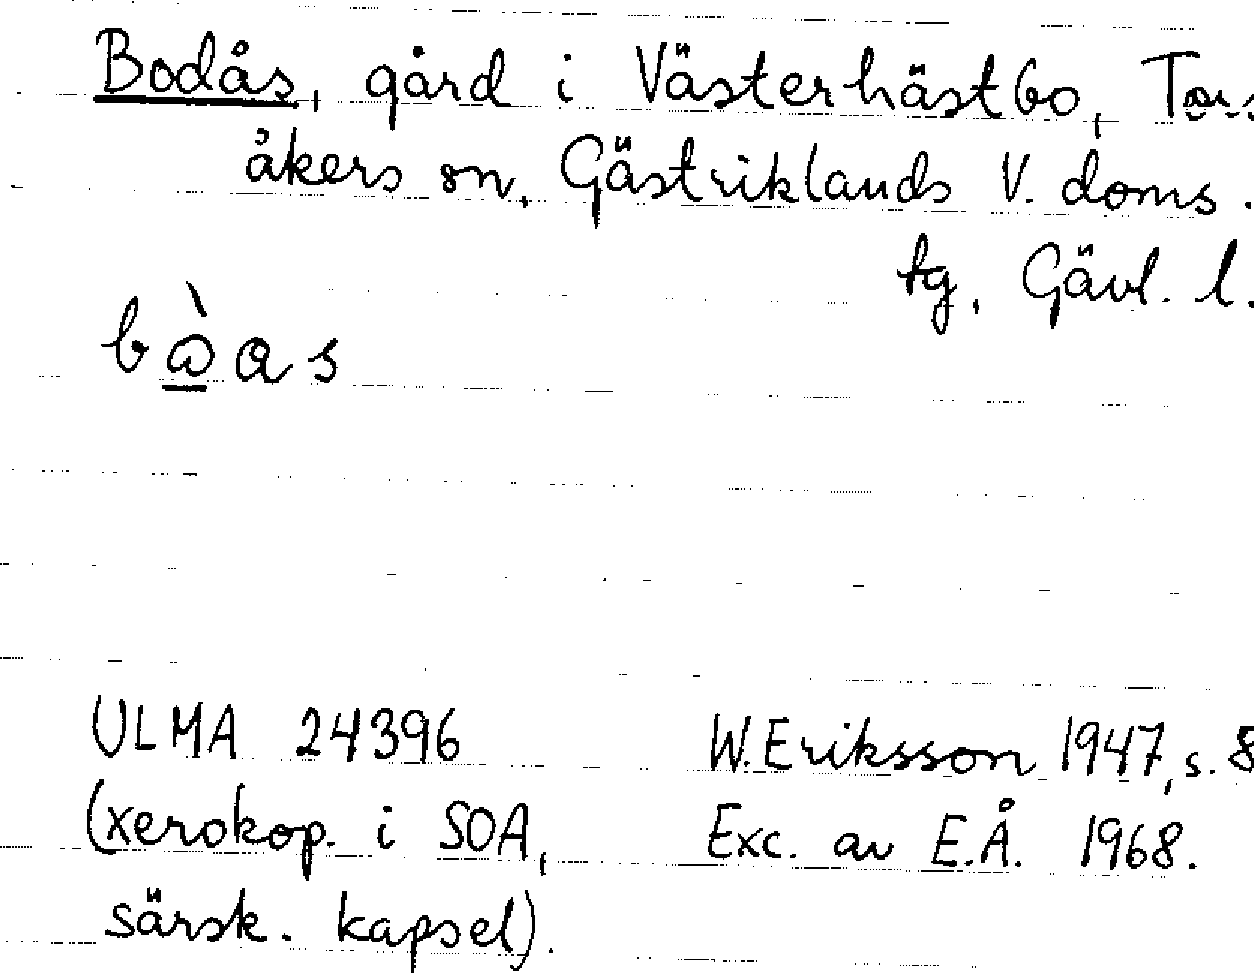 Bodås, gård i Västerhästbo, Tors
åkers sn. Gästriklands V. doms.
tg, Gävl. l.
bàas
ULMA 24396 W. Eriksson 1947, s. 8
(xerokop. i SOA, Exc. av E.Å. 1968.
särsk. kapsel).